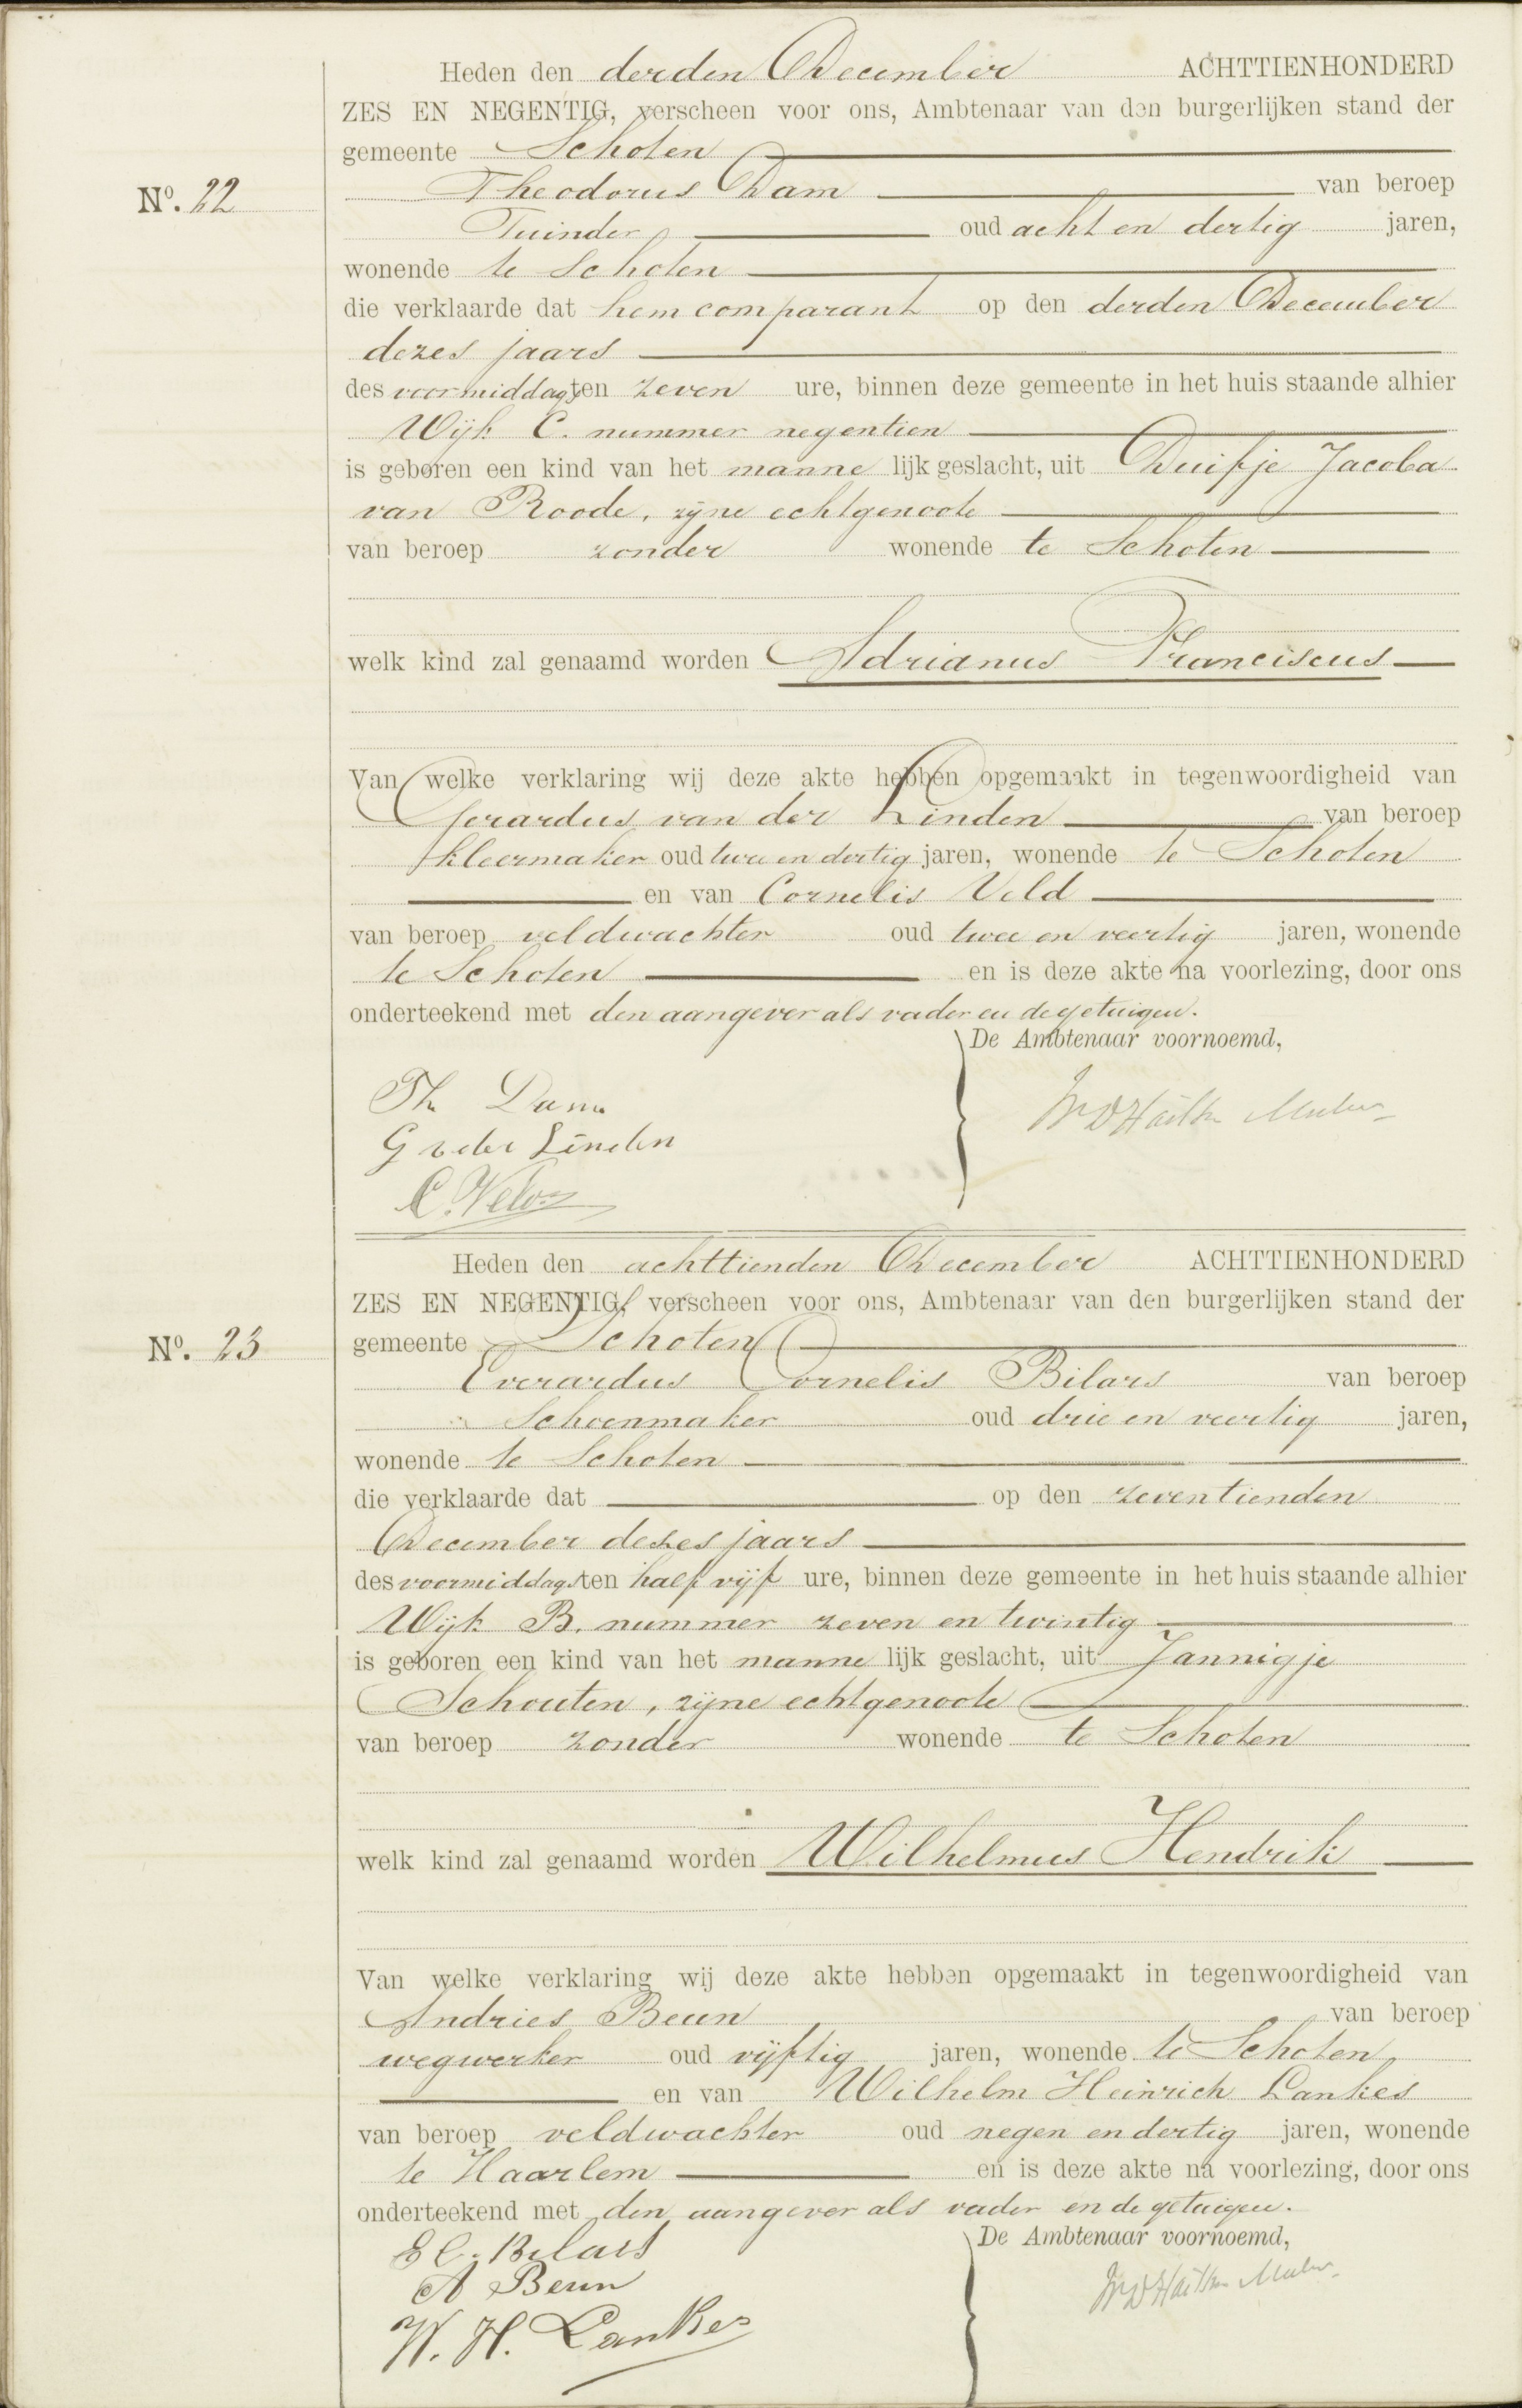 Heden den derden December ACHTTIENHONDERD
ZES EN NEGENTIG, verscheen voor ons, Ambtenaar van den burgerlijken stand der
gemeente Schoten
No. 22
Theodorus Dam van beroep
Tuinder oud acht en dertig jaren,
wonende te Schoten
die verklaarde dat hem comparant op den derden December
dezes jaars
des voormiddags ten zeven ure, binnen deze gemeente in het huis staande alhier
Wijk C. nummer negentien
is geboren een kind van het mannelijk geslacht, uit Duifje Jacoba
van Roode, zijne echtgenoote
van beroep zonder wonende te Schoten
welk kind zal genaamd worden Adrianus Franciscus
Van welke verklaring wij deze akte hebben opgemaakt in tegenwoordigheid van
Gerardus van der Linden van beroep
kleermaker oud twee en dertig jaren, wonende te Schoten
en van Cornelis Veld
van beroep veldwachter oud twee en veertig jaren, wonende
te Schoten en is deze akte na voorlezing, door ons
onderteekend met den aangever als vader en de getuigen.
De Ambtenaar voornoemd,
Th Dam
G v der Linden
Heden den achttienden December ACHTTIENHONDERD
ZES EN NEGENTIG, verscheen voor ons, Ambtenaar van den burgerlijken stand der
gemeente Schoten
No. 23
Everardus Cornelis Bilars van beroep
Schoenmaker oud drie en veertig jaren,
wonende te Schoten
die verklaarde dat op den zeventienden
December dezes jaars
des voormiddags ten half vijf ure, binnen deze gemeente in het huis staande alhier
Wijk B. nummer zeven en twintig
is geboren een kind van het mannelijk geslacht, uit Jannigje
Schouten, zijne echtgenoote
van beroep zonder wonende te Schoten
welk kind zal genaamd worden Wilhelmus Hendrik
Van welke verklaring wij deze akte hebben opgemaakt in tegenwoordigheid van
Andries Beun van beroep
wegwerker oud vijftig jaren, wonende te Schoten
en van Wilhelm Heinrich Lankes
van beroep veldwachter oud negen en dertig jaren, wonende
te Haarlem en is deze akte na voorlezing, door ons
onderteekend met den aangever als vader en de getuigen.
De Ambtenaar voornoemd,
E C. Bilars
A Beun
W. H. Lankes